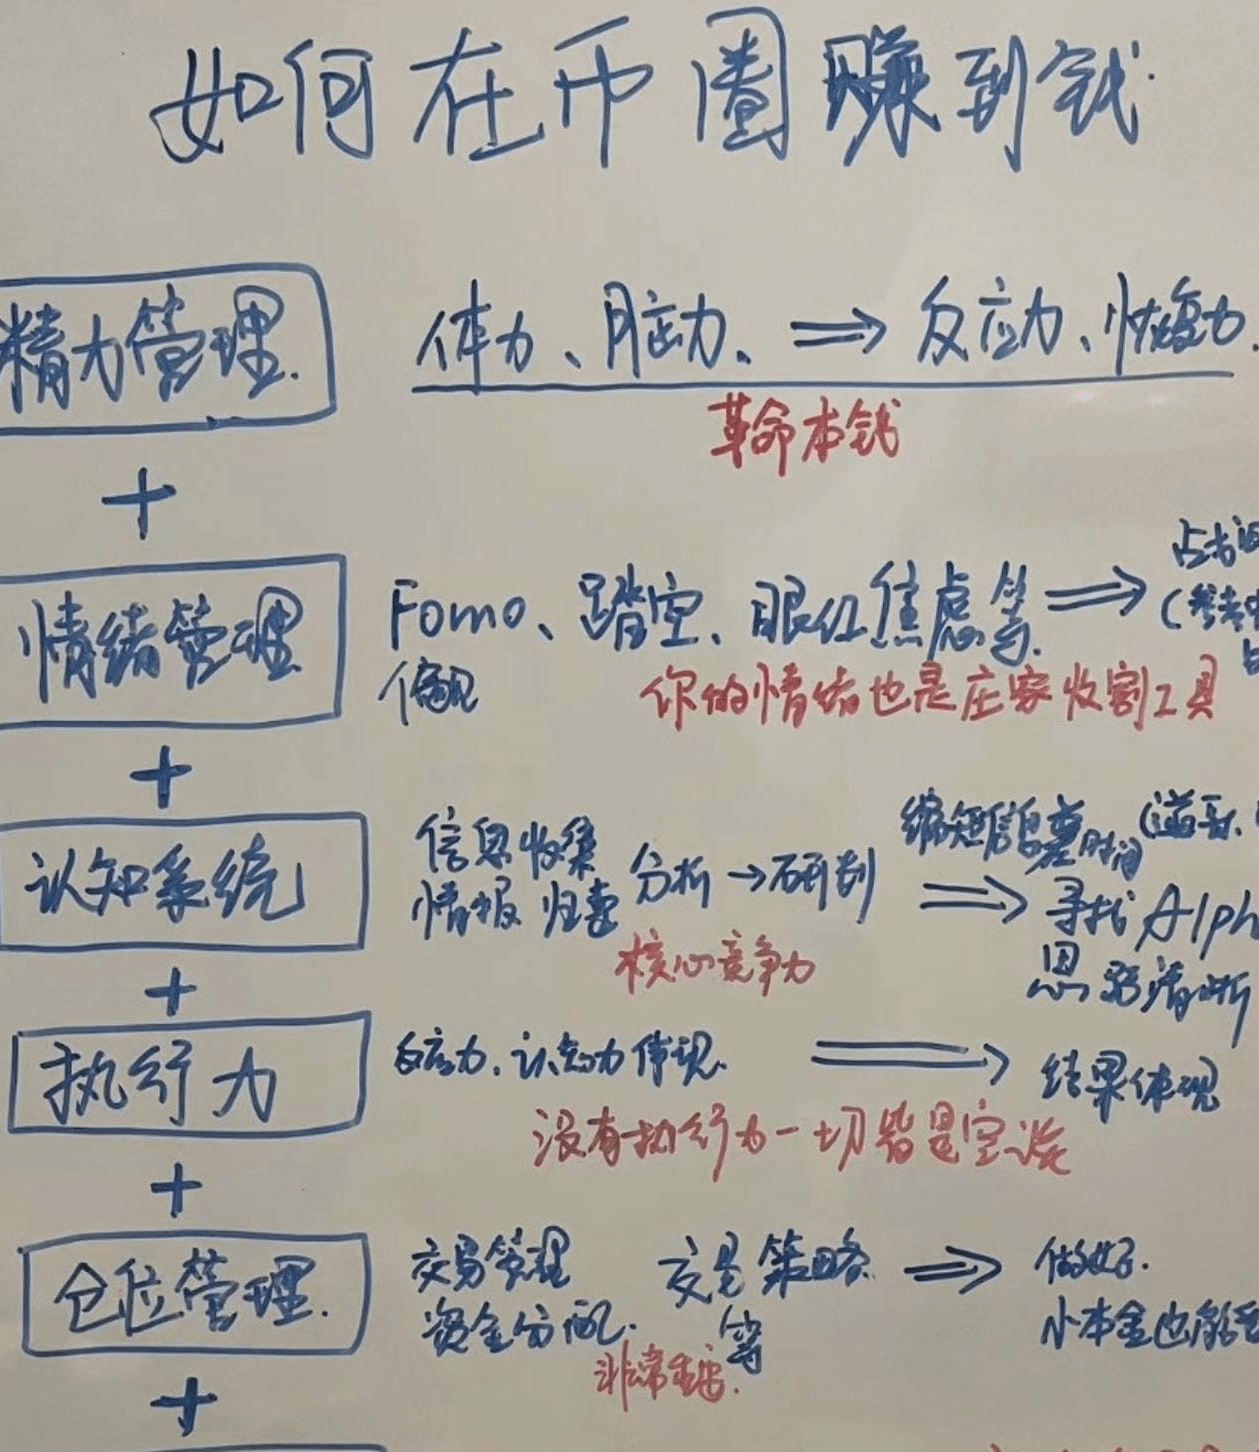 如何在币圈赚到钱.
精力管理. 体力、脑力、⇒ 反应力、恢复力.
革命本钱
+
情绪管理 Fomo、踏空、眼红焦虑等. ⇒
偏见
你的情绪也是庄家收割工具
+
认知系统 信息收集 分析→研判 ⇒ 缩短信息差时间
情报 归类 寻找 Alph
核心竞争力 思路清晰
+
执行力 反应力、认知力体现. ⇒ 结果体现
没有执行力一切皆是空谈
+
仓位管理. 交易管理 交易策略 ⇒ 做好.
资金分配. 等 小本金也能
非常重要.
+